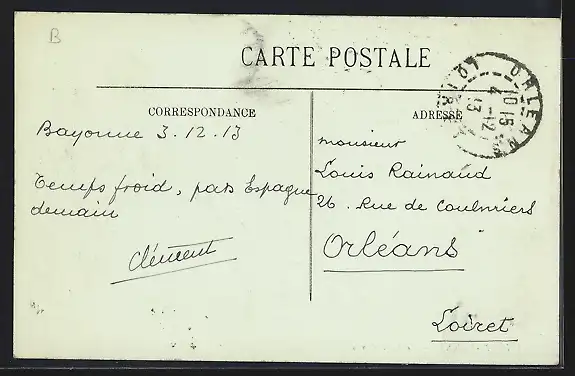 B
CARTE POSTALE
CORRESPONDANCE
ADRESSE
Bayonne 3.12.13
Temps froid, pas Espagne
demain
Clément
monsieur
Louis Rainaud
26. Rue de Coulmiers
Orléans
Loiret
ORLEANS
10-15
4-12
13